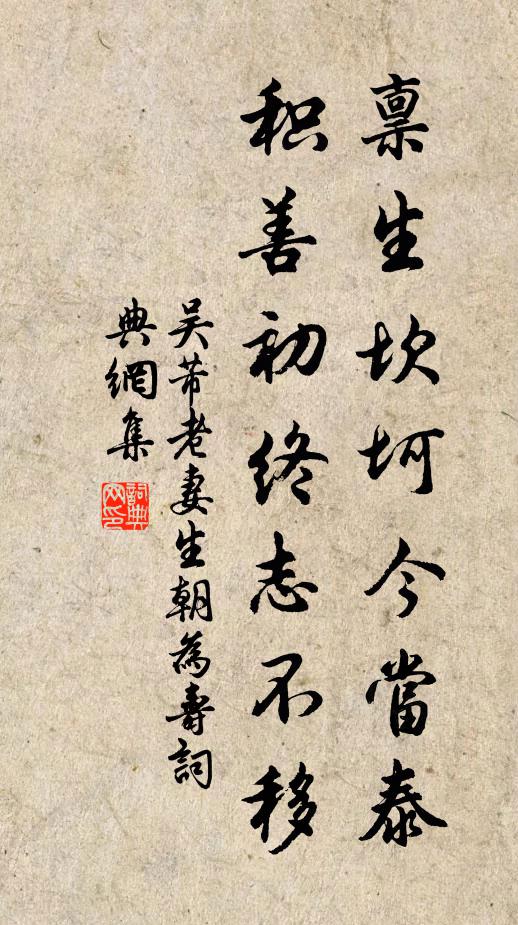 禀生坎坷今當泰
积善初終志不移
吴芾老妻生朝為壽詞
典網集
詞典網印